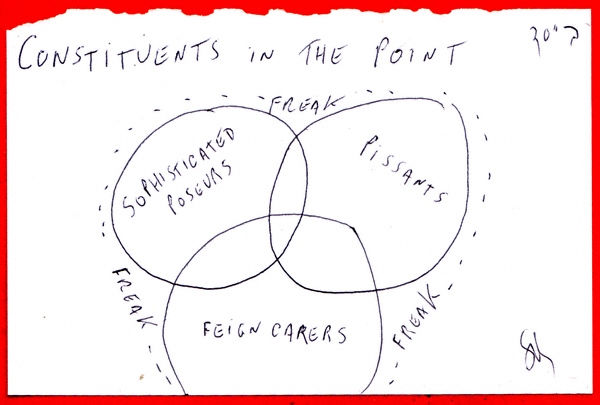 CONSTITUENTS IN THE POINT
FREAK
SOPHISTICATED
POSEURS
PISSANTS
FREAK
FREAK
FEIGN CARERS